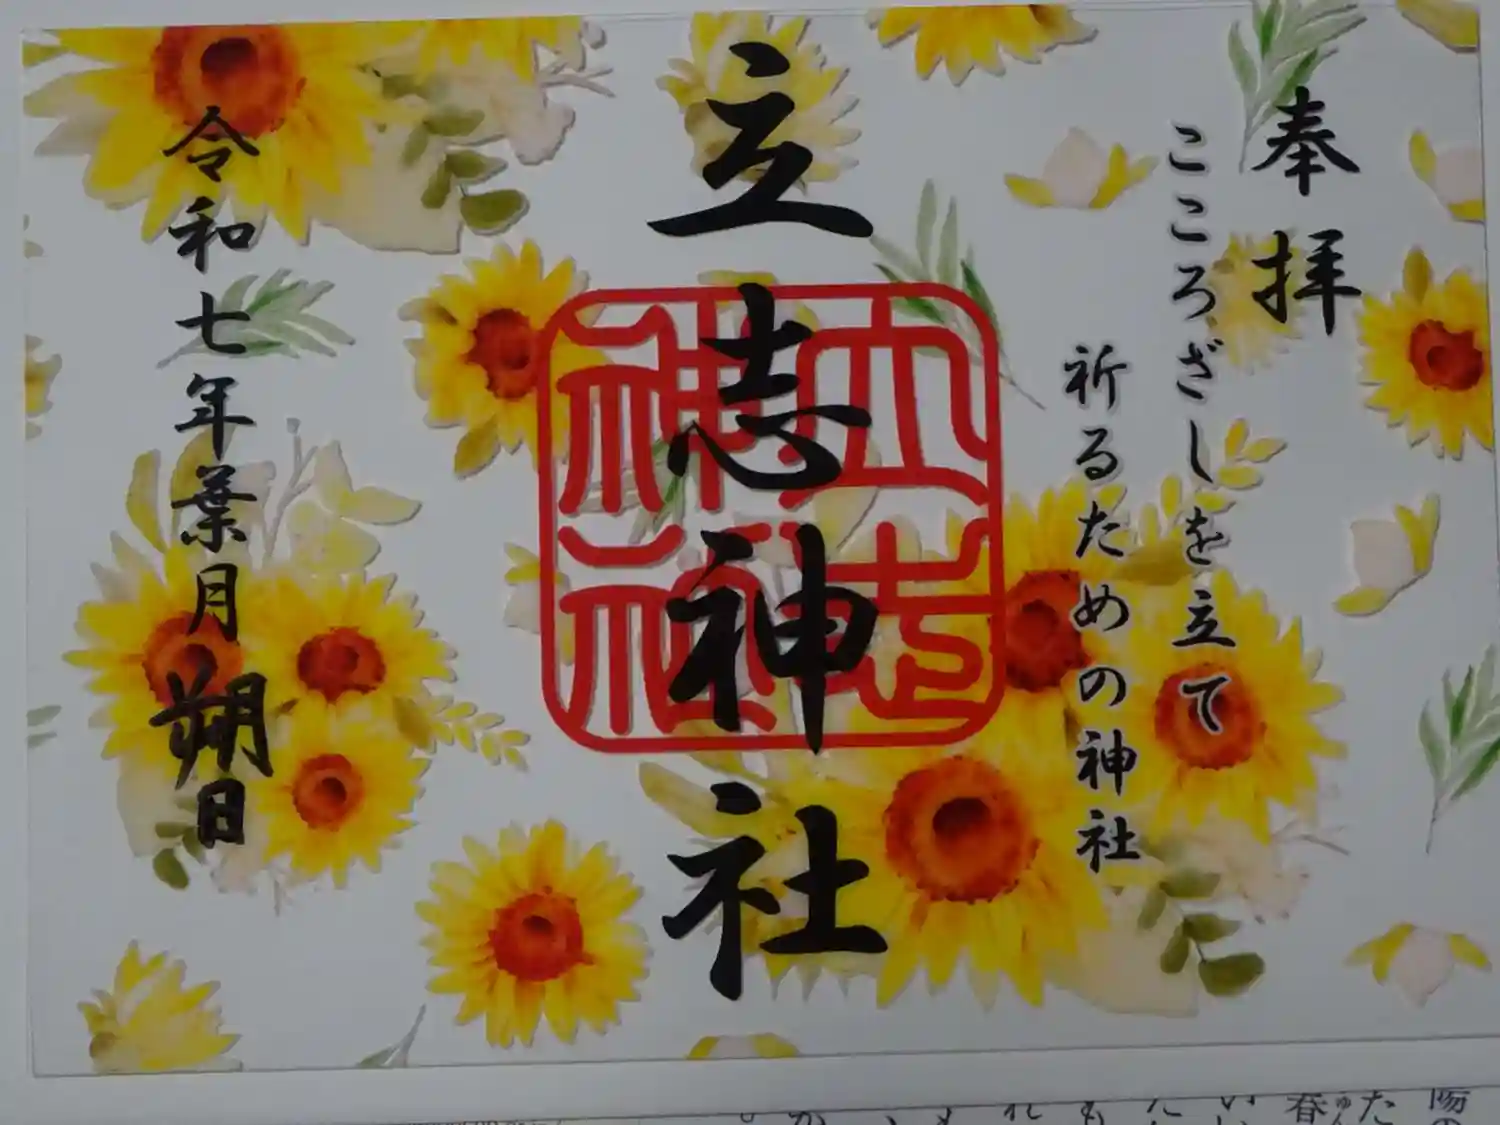 奉拝
こころざしを立て
祈るための神社
立志神社
立志神社
令和七年葉月朔日